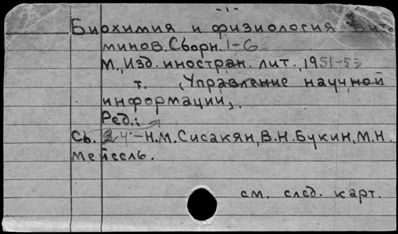 -1-
Биохимия и физиология вита-
минов. Сборн. 1-6
М., Изд. иностран. лит., 1951-53
т. , Управление научной
информации,.
Ред.:
Сб. 2-4 - Н.М. Сисакян, В.Н. Букин, М.Н.
Мейсель.
см. след. карт.